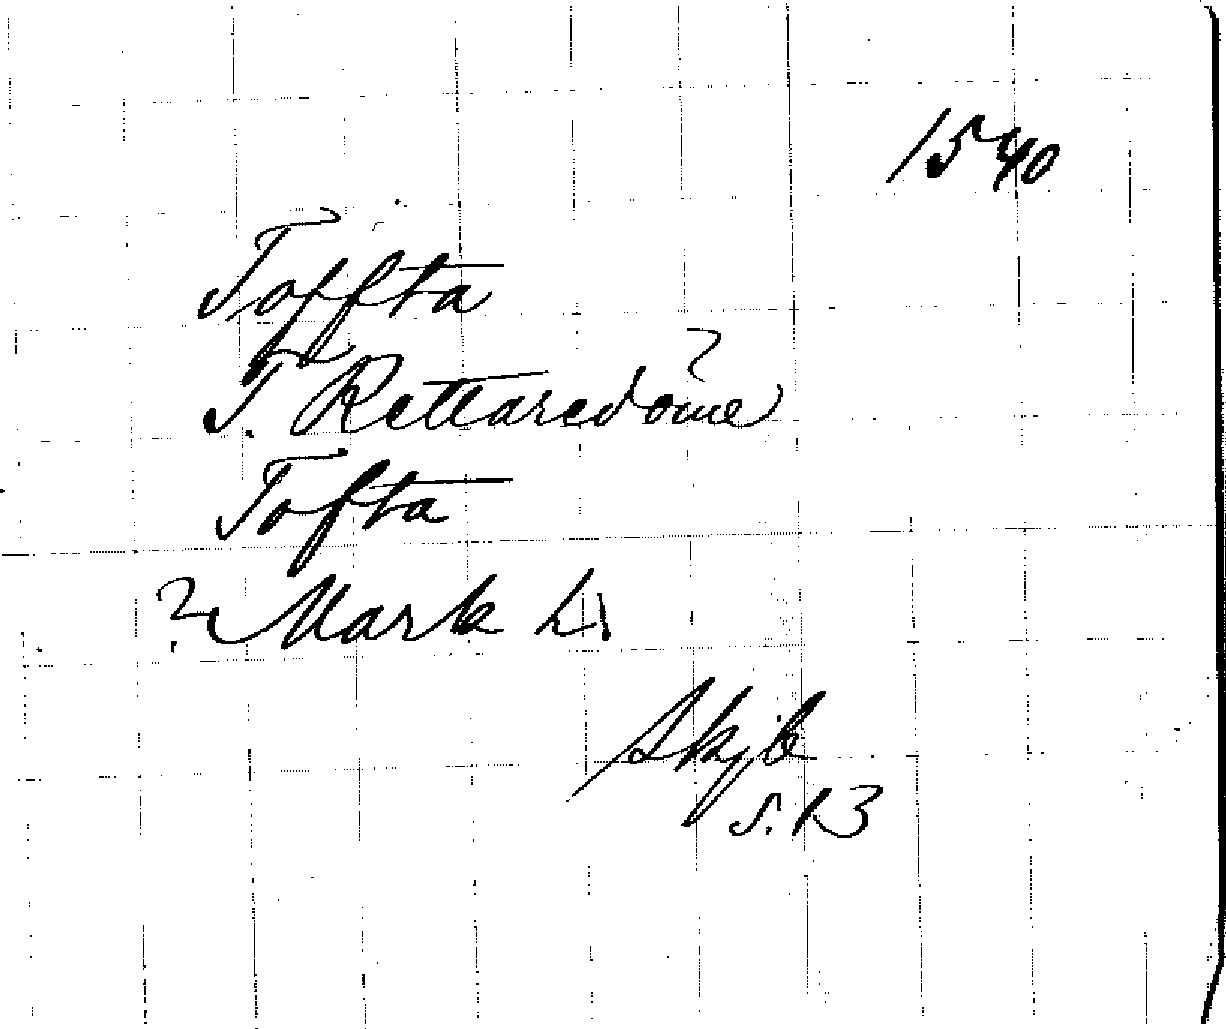 1540
Toffta
T. Rettaredome
?
Tofta
? Mark
s. 13